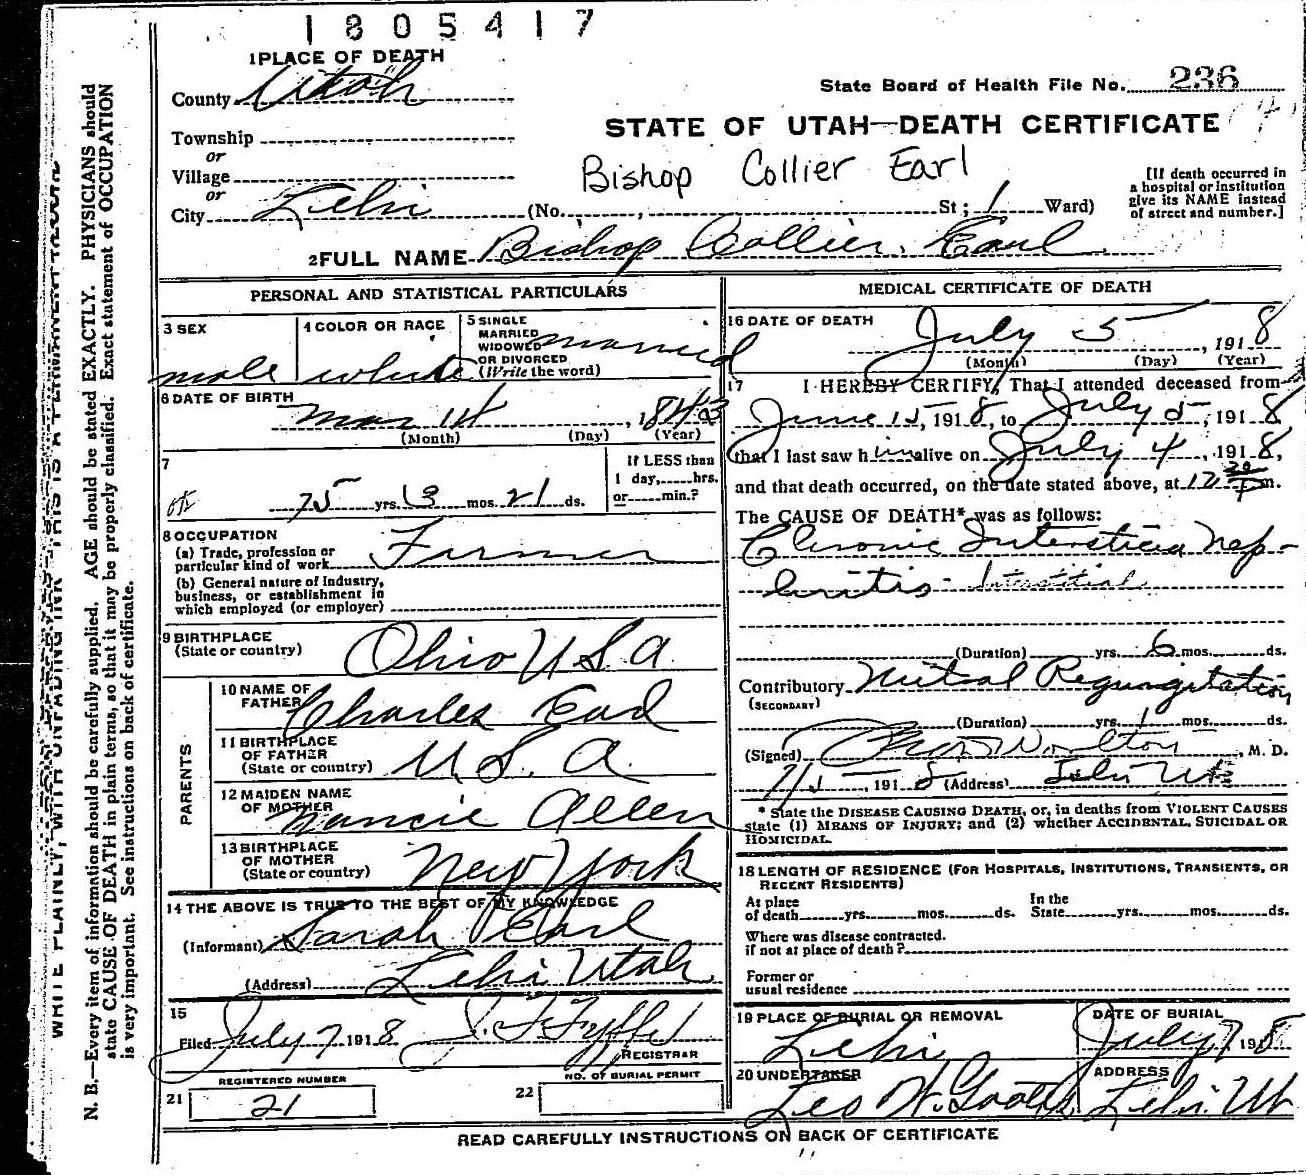 1805417
1 PLACE OF DEATH
County Utah
State Board of Health File No. 236
STATE OF UTAH—DEATH CERTIFICATE
Township
or
Village
or
City Lehi (No. , St; 1 Ward)
Bishop Collier Earl
[If death occurred in
a hospital or institution
give its NAME instead
of street and number.]
2 FULL NAME Bishop Collier Earl
PERSONAL AND STATISTICAL PARTICULARS
3 SEX
male
4 COLOR OR RACE
white
5 SINGLE
MARRIED
WIDOWED
OR DIVORCED
(Write the word)
married
6 DATE OF BIRTH
Mar 14, 1843
(Month) (Day) (Year)
7
75 yrs. 3 mos. 21 ds.
If LESS than
1 day, hrs.
or min.?
8 OCCUPATION
(a) Trade, profession or
particular kind of work Farmer
(b) General nature of Industry,
business, or establishment in
which employed (or employer)
9 BIRTHPLACE
(State or country) Ohio U S. A
PARENTS
10 NAME OF
FATHER Charles Earl
11 BIRTHPLACE
OF FATHER
(State or country) U. S. A
12 MAIDEN NAME
OF MOTHER Nancie Allen
13 BIRTHPLACE
OF MOTHER
(State or country) New York
14 THE ABOVE IS TRUE TO THE BEST OF MY KNOWLEDGE
(Informant) Sarah Earl
(Address) Lehi Utah
15
Filed July 7 1918
REGISTRAR
REGISTERED NUMBER
21 21
NO. OF BURIAL PERMIT
22
MEDICAL CERTIFICATE OF DEATH
16 DATE OF DEATH
July 5, 1918
(Month) (Day) (Year)
17 I HEREBY CERTIFY, That I attended deceased from
June 15, 1918, to July 5, 1918
that I last saw him alive on July 4, 1918,
and that death occurred, on the date stated above, at 12 30 P m.
The CAUSE OF DEATH* was as follows:
Chronic Intersticial Nep-
hritis Interstitial
(Duration) yrs. 6 mos. ds.
Contributory Mitral Regurgitation
(SECONDARY)
(Duration) yrs. 1 mos. ds.
(Signed) Woolton, M. D.
7/5, 1918 (Address) Lehi Ut
* State the DISEASE CAUSING DEATH, or, in deaths from VIOLENT CAUSES
state (1) MEANS OF INJURY; and (2) whether ACCIDENTAL, SUICIDAL OR
HOMICIDAL.
18 LENGTH OF RESIDENCE (FOR HOSPITALS, INSTITUTIONS, TRANSIENTS, OR
RECENT RESIDENTS)
At place
of death yrs. mos. ds.
In the
State yrs. mos. ds.
Where was disease contracted.
if not at place of death?
Former or
usual residence
19 PLACE OF BURIAL OR REMOVAL
Lehi
DATE OF BURIAL
July 7 1918
20 UNDERTAKER
Leo W. Goates
ADDRESS
Lehi Ut
READ CAREFULLY INSTRUCTIONS ON BACK OF CERTIFICATE
WRITE PLAINLY, WITH UNFADING INK—THIS IS A PERMANENT RECORD
N. B.—Every item of information should be carefully supplied. AGE should be stated EXACTLY. PHYSICIANS should
state CAUSE OF DEATH in plain terms, so that it may be properly classified. Exact statement of OCCUPATION
is very important. See instructions on back of certificate.